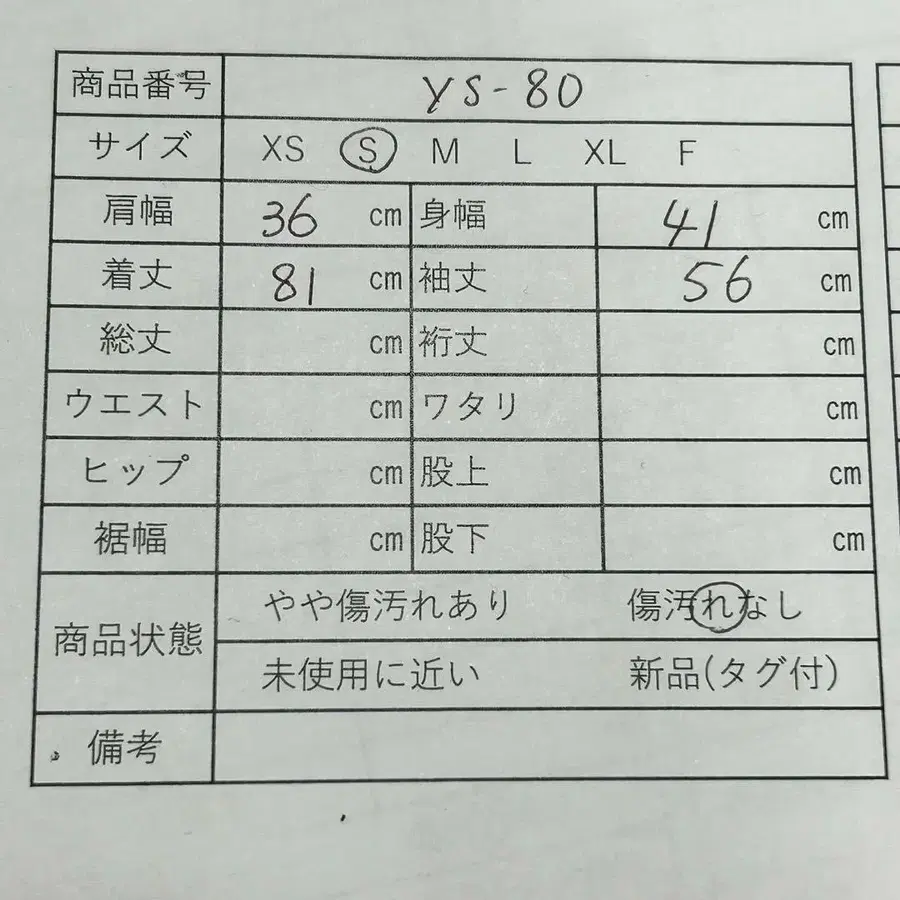 商品番号 YS-80
サイズ XS S M L XL F
肩幅 36 cm 身幅 41 cm
着丈 81 cm 袖丈 56 cm
総丈 cm 裄丈 cm
ウエスト cm ワタリ cm
ヒップ cm 股上 cm
裾幅 cm 股下 cm
商品状態 やや傷汚れあり 傷汚れなし
未使用に近い 新品(タグ付)
備考